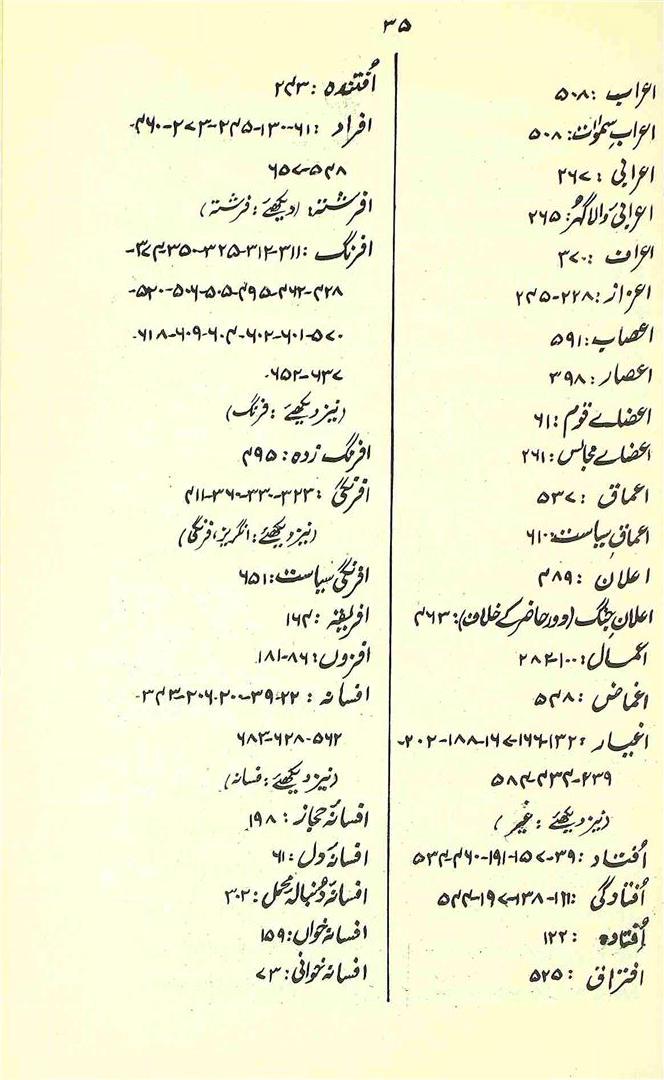 ۳۵
اعراب : ۵۰۸
اعرابِ سمٰوات: ۵۰۸
اعرابی : ۲۶۷
اعرابیِ والا گہر: ۲۶۵
اعراف : ۳۷۰
اعزاز: ۲۲۸-۲۴۵
اعصاب: ۵۹۱
اعصار : ۳۹۸
اعضائے قوم : ۶۱
اعضائے مجالس: ۲۶۱
اعماق : ۵۳۷
اعماقِ سیاست: ۶۱۰
اعلان : ۴۸۹
اعلانِ جنگ (دورِ حاضر کے خلاف): ۴۶۳
اعمال: ۱۰۰-۲۸۲
اغماض : ۵۴۸
اغیار : ۱۳۲-۱۶۶-۱۶۷-۱۸۸-۲۰۲-
۲۳۹-۴۳۴-۵۸۴
(نیز دیکھئے : غیر)
اُفتاد : ۳۹-۱۵۷-۱۹۱-۴۶۰-۵۳۴
اُفتادگی : ۱۲۱-۱۳۸-۱۹۷-۵۴۴
اُفتادہ : ۱۲۲
افتراق : ۵۲۵
اُفتندہ : ۲۴۳
افراد : ۶۱-۱۳۰-۲۴۵-۲۷۳-۴۶۰-
۵۴۸-۶۵۷
افرشتہ: (دیکھئے : فرشتہ)
افرنگ : ۳۱۱-۳۱۲-۳۲۵-۳۵۰-۳۷۴-
۴۲۸-۴۶۲-۴۹۵-۵۰۵-۵۰۶-۵۲۰-
۵۷۰-۶۰۱-۶۰۲-۶۰۴-۶۰۹-۶۱۸-
۶۳۷-۶۵۲-
(نیز دیکھئے : فرنگ)
افرنگ زدہ : ۴۹۵
افرنگی : ۳۲۳-۳۳۰-۳۶۰-۴۱۱
(نیز دیکھئے : انگریز، فرنگی)
افرنگی سیاست: ۶۵۱
افریقہ : ۱۶۴
افزوں: ۸۶-۱۸۱
افسانہ : ۲۲-۳۹-۲۰۰-۲۰۶-۳۴۳-
۵۶۲-۶۲۸-۶۸۳
(نیز دیکھئے : فسانہ)
افسانۂ حجاز : ۱۹۸
افسانۂ دل : ۶۱
افسانۂ دُنبالۂ محمل : ۳۰۲
افسانہ خواں: ۱۵۹
افسانہ خوانی: ۷۳